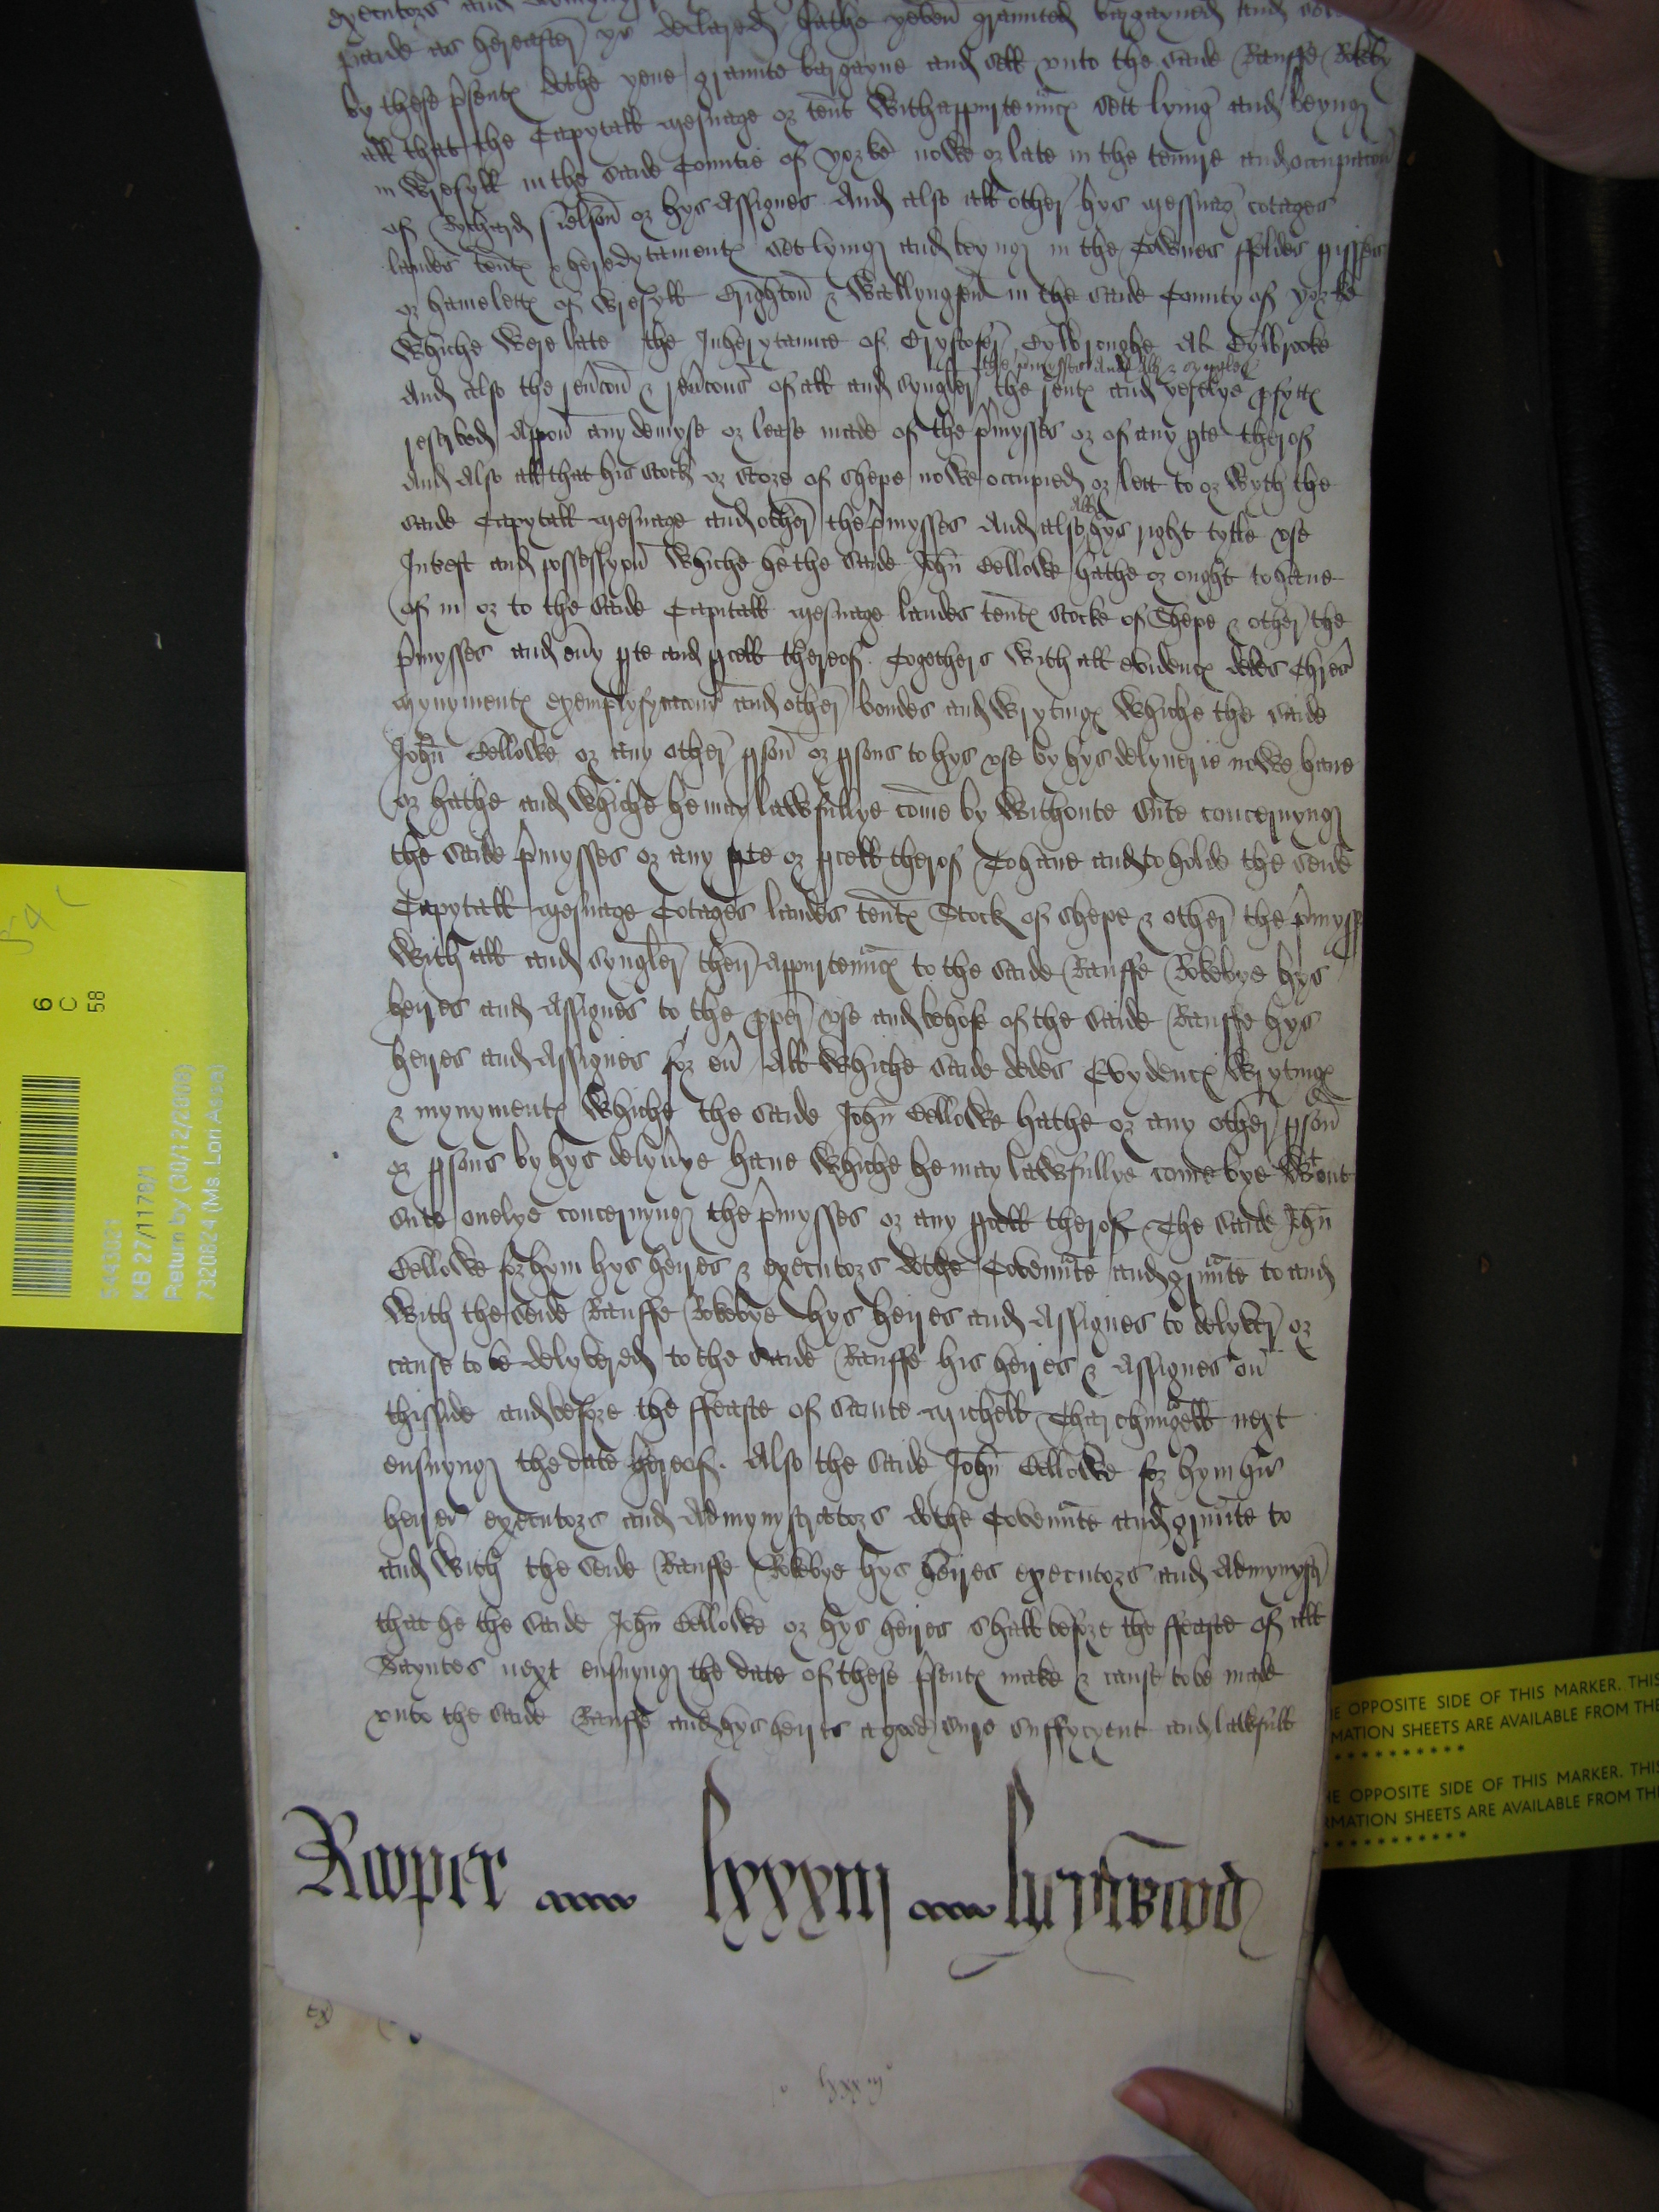 executors and
parde as hereafter ys declared hathe yeven graunted bargayned and
by these p'sentℯ dothe yeve graunte bargayne and sell vnto the saide Rauffe Rokeby
all that the Capytall mesuage or tent' with appurtenncℯ sett lying and beyng
in Wresyll in the saide Countie of yorke nowe or late in the tenure and occupacon
of Rychard or hys Assignes And also all other hys messuag' cotages
landes tentℯ & heredytamentℯ set lying and beyng in the Townes ffeldes
or hamelettℯ of Wresyll Brighton & Wallyngfen in the saide County of yorke
Whiche were late the Inherytaunce of Crystofer
the p'mysses and all & syngler
And also the rev'con & rev'cons of all and syngler the rentℯ and yerelye p'fyttℯ
res'ved Appon any demyse or lease made of the p'mysses or of any p'te therof
And Also all that his stock or store of shepe nowe occupied or lett to or wyth the
all
saide Capytall mesuage and other the p'mysses And also hys right tytle vse
Int'est and possessyon Whiche he the saide John Bellowe hathe or ought to have
of in or to the saide Capitall mesuage landes tentℯ stocke of Shepe & other the
p'mysses and ev'y p'te and p'cell thereof. Togethers with all evidencℯ dedes Chres
mynymentℯ exemplyfycacons and other bondes and wrytingℯ Whiche the saide
John Bellowe or any other p'son or p'sons to hys vse by hys delyuerie nowe have
or hathe and Whiche he may lawfullye come by withoute sute concernyng
the saide p'mysses or any p'te or p'cell therof To have and to holde the seide
Capytall mesuage Cotages landes tentℯ Stock of shepe & other the p'myss
With all and syngler their Appurtenncℯ to the saide Rauffe Rokebye hys
heires and Assignes to the p'per vse and behofe of the saide Rauffe hys
heires and Assignes for ev' All Whiche saide dedes Evydencℯ Wrytingℯ
& mynymentℯ Whiche the saide John Bellowe hathe or any other p'son
or p'sons by hys delyv'ye have Whiche he may lawfullye come bye wtout
sute onelye concernyng the p'mysses or any p'cell therof The saide John
Bellowe for hym hys heires & executors dothe Covenn'te and grn'te to and
With the seide Rauffe Rokebye hys heires and Assignes to delyver or
cause to be delyvered to the saide Rauffe his heires & Assignes on
thisside and before the ffeaste of Sainte Michell Tharchungell next
ensuyng the date hereof. Also the saide John Bellowe for hym his
heires executors and Admynystrators dothe Covenn'te and grn'te to
and with the seide Rauffe Rokebye hys heires executors and Admynystr'
that he the saide John Bellowe or hys heires shall before the ffeaste of all
Sayntes next ensuyng the date of these p'sentℯ make & cause to be made
vnto the saide Rauffe and hys heires a good sure suffycyent and lawfull
Rooper lxxxiij
lxxxiij
6
C
58
5443021
KB 27/1178/1
Return by (30/12/2008)
7320824 (Ms. Lori
OPPOSITE SIDE OF THIS MARKER. THIS
MATION SHEETS ARE AVAILABLE FROM THE
OPPOSITE SIDE OF THIS MARKER. THIS
RMATION SHEETS ARE AVAILABLE FROM THE